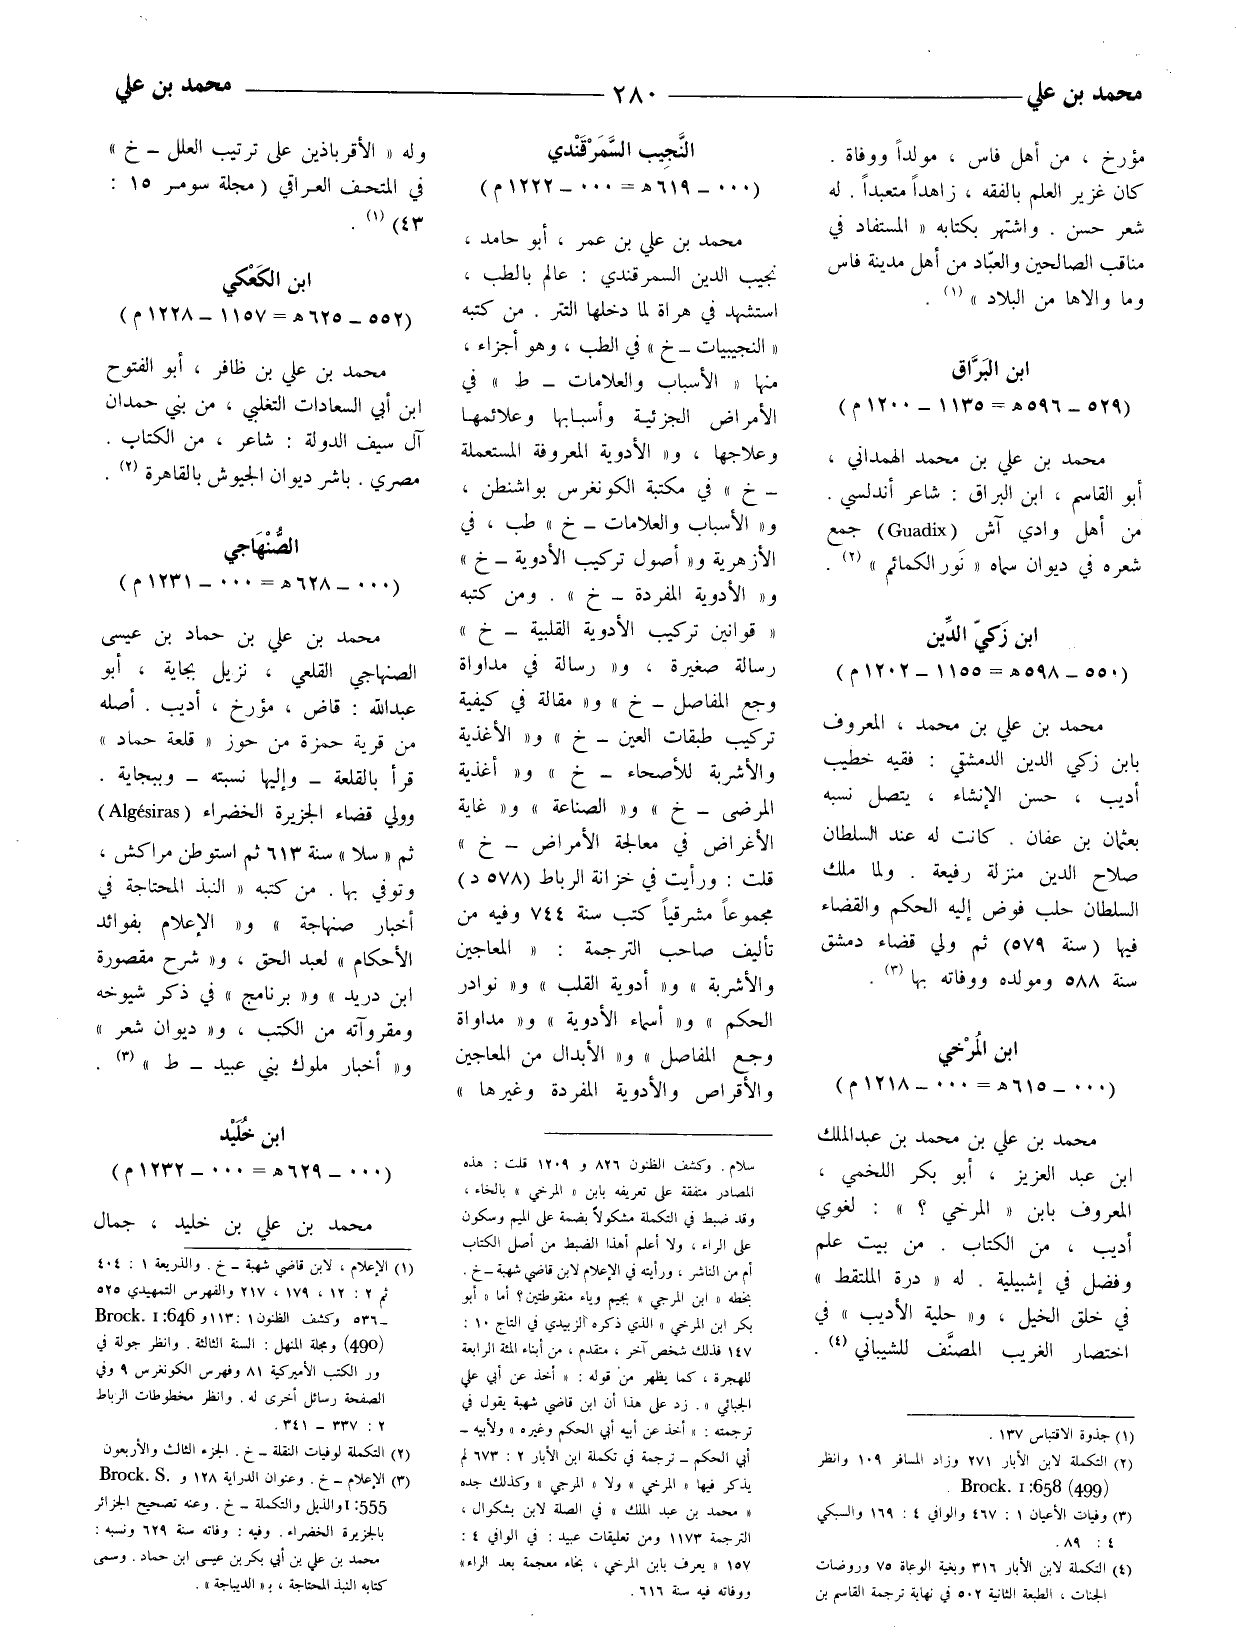 محمد بن علي ٢٨٠ محمد بن علي
مؤرخ ، من أهل فاس ، مولداً ووفاة .
كان غزير العلم بالفقه ، زاهداً متعبداً . له
شعر حسن . واشتهر بكتابه « المستفاد في
مناقب الصالحين والعبّاد من أهل مدينة فاس
وما والاها من البلاد » (١) .
ابن البَرَّاق
(٥٢٩ ــ ٥٩٦ هـ = ١١٣٥ ــ ١٢٠٠ م)
محمد بن علي بن محمد الهمداني ،
أبو القاسم ، ابن البراق : شاعر أندلسي .
من أهل وادي آش (Guadix) جمع
شعره في ديوان سماه « نَور الكمائم » (٢) .
ابن زَكيّ الدِّين
(٥٥٠ ــ ٥٩٨ هـ = ١١٥٥ ــ ١٢٠٢ م)
محمد بن علي بن محمد ، المعروف
بابن زكي الدين الدمشقي : فقيه خطيب
أديب ، حسن الإنشاء ، يتصل نسبه
بعثمان بن عفان . كانت له عند السلطان
صلاح الدين منزلة رفيعة . ولما ملك
السلطان حلب فوض إليه الحكم والقضاء
فيها (سنة ٥٧٩) ثم ولي قضاء دمشق
سنة ٥٨٨ ومولده ووفاته بها (٣) .
ابن المُرْخي
(٠٠٠ ــ ٦١٥ هـ = ٠٠٠ ــ ١٢١٨ م)
محمد بن علي بن محمد بن عبدالملك
ابن عبد العزيز ، أبو بكر اللخمي ،
المعروف بابن « المرخي ؟ » : لغوي
أديب ، من الكتاب . من بيت علم
وفضل في إشبيلية . له « درة الملتقط »
في خلق الخيل ، و« حلية الأديب » في
اختصار الغريب المصنَّف للشيباني (٤) .
(١) جذوة الاقتباس ١٣٧ .
(٢) التكملة لابن الأبار ٢٧١ وزاد المسافر ١٠٩ وانظر
Brock. 1 :658 (499) .
(٣) وفيات الأعيان ١ : ٤٦٧ والوافي ٤ : ١٦٩ والسبكي
٤ : ٨٩ .
(٤) التكملة لابن الأبار ٣١٦ وبغية الوعاة ٧٥ وروضات
الجنات ، الطبعة الثانية ٥٠٢ في نهاية ترجمة القاسم بن
النَّجِيب السَّمَرْقَنْدي
(٠٠٠ ــ ٦١٩ هـ = ٠٠٠ ــ ١٢٢٢ م)
محمد بن علي بن عمر ، أبو حامد ،
نجيب الدين السمرقندي : عالم بالطب ،
استشهد في هراة لما دخلها التتر . من كتبه
« النجيبيات ــ خ » في الطب ، وهو أجزاء ،
منها « الأسباب والعلامات ــ ط » في
الأمراض الجزئية وأسبابها وعلائمها
وعلاجها ، و« الأدوية المعروفة المستعملة
ــ خ » في مكتبة الكونغرس بواشنطن ،
و« الأسباب والعلامات ــ خ » طب ، في
الأزهرية و« أصول تركيب الأدوية ــ خ »
و« الأدوية المفردة ــ خ » . ومن كتبه
« قوانين تركيب الأدوية القلبية ــ خ »
رسالة صغيرة ، و« رسالة في مداواة
وجع المفاصل ــ خ » و« مقالة في كيفية
تركيب طبقات العين ــ خ » و« الأغذية
والأشربة للأصحاء ــ خ » و« أغذية
المرضى ــ خ » و« الصناعة » و« غاية
الأغراض في معالجة الأمراض ــ خ »
قلت : ورأيت في خزانة الرباط (٥٧٨ د)
مجموعاً مشرقياً كتب سنة ٧٤٤ وفيه من
تأليف صاحب الترجمة : « المعاجين
والأشربة » و« أدوية القلب » و« نوادر
الحكم » و« أسماء الأدوية » و« مداواة
وجع المفاصل » و« الأبدال من المعاجين
والأقراص والأدوية المفردة وغيرها »
سلام . وكشف الظنون ٨٢٦ و ١٢٠٩ قلت : هذه
المصادر متفقة على تعريفه بابن « المرخي » بالخاء ،
وقد ضبط في التكملة مشكولاً بضمة على الميم وسكون
على الراء ، ولا أعلم أهذا الضبط من أصل الكتاب
أم من الناشر ، ورأيته في الإعلام لابن قاضي شهبة ــ خ .
بخطه « ابن المرجي » بجيم وياء منقوطتين؟ أما « أبو
بكر ابن المرخي » الذي ذكره الزبيدي في التاج ١٠ :
١٤٧ فذلك شخص آخر ، متقدم ، من أبناء المئة الرابعة
للهجرة ، كما يظهر من قوله : « أخذ عن أبي علي
الجبائي » . زد على هذا أن ابن قاضي شهبة يقول في
ترجمته : « أخذ عن أبيه أبي الحكم وغيره » ولأبيه ــ
أبي الحكم ــ ترجمة في تكملة ابن الأبار ٢ : ٦٧٣ لم
يذكر فيها « المرخي » ولا « المرجي » وكذلك جده
« محمد بن عبد الملك » في الصلة لابن بشكوال ،
الترجمة ١١٧٣ ومن تعليقات عبيد : في الوافي ٤ :
١٥٧ « يعرف بابن المرخي ، بخاء معجمة بعد الراء»
ووفاته فيه سنة ٦١٦ .
وله « الأقرباذين على ترتيب العلل ــ خ »
في المتحف العراقي (مجلة سومر ١٥ :
٤٣) (١) .
ابن الكَعْكي
(٥٥٢ ــ ٦٢٥ هـ = ١١٥٧ ــ ١٢٢٨ م)
محمد بن علي بن ظافر ، أبو الفتوح
ابن أبي السعادات التغلبي ، من بني حمدان
آل سيف الدولة : شاعر ، من الكتاب .
مصري . باشر ديوان الجيوش بالقاهرة (٢) .
الصُّنْهَاجي
(٠٠٠ ــ ٦٢٨ هـ = ٠٠٠ ــ ١٢٣١ م)
محمد بن علي بن حماد بن عيسى
الصنهاجي القلعي ، نزيل بجاية ، أبو
عبدالله : قاض ، مؤرخ ، أديب . أصله
من قرية حمزة من حوز « قلعة حماد »
قرأ بالقلعة ــ وإليها نسبته ــ وببجاية .
وولي قضاء الجزيرة الخضراء (Algésiras)
ثم « سلا » سنة ٦١٣ ثم استوطن مراكش ،
وتوفي بها . من كتبه « النبذ المحتاجة في
أخبار صنهاجة » و« الإعلام بفوائد
الأحكام » لعبد الحق ، و« شرح مقصورة
ابن دريد » و« برنامج » في ذكر شيوخه
ومقروآته من الكتب ، و« ديوان شعر »
و« أخبار ملوك بني عبيد ــ ط » (٣) .
ابن خُلَيْد
(٠٠٠ ــ ٦٢٩ هـ = ٠٠٠ ــ ١٢٣٢ م)
محمد بن علي بن خليد ، جمال
(١) الإعلام ، لابن قاضي شهبة ــ خ . والذريعة ١ : ٤٠٤
ثم ٢ : ١٢ ، ١٧٩ ، ٢١٧ والفهرس التمهيدي ٥٢٥
ــ ٥٣٦ وكشف الظنون ١ : ١١٣ و Brock. 1 :646
(490) ومجلة المنهل : السنة الثالثة . وانظر جولة في
دور الكتب الأميركية ٨١ وفهرس الكونغرس ٩ وفي
الصفحة رسائل أخرى له . وانظر مخطوطات الرباط
٢ : ٣٣٧ ــ ٣٤١ .
(٢) التكملة لوفيات النقلة ــ خ . الجزء الثالث والأربعون
(٣) الإعلام ــ خ . وعنوان الدراية ١٢٨ و Brock. S.
1 :555 والذيل والتكملة ــ خ . وعنه تصحيح الجزائر
بالجزيرة الخضراء . وفيه : وفاته سنة ٦٢٩ ونسبه :
محمد بن علي بن أبي بكر بن عيسى ابن حماد . وسمى
كتابه النبذ المحتاجة ، بـ« الديباجة » .